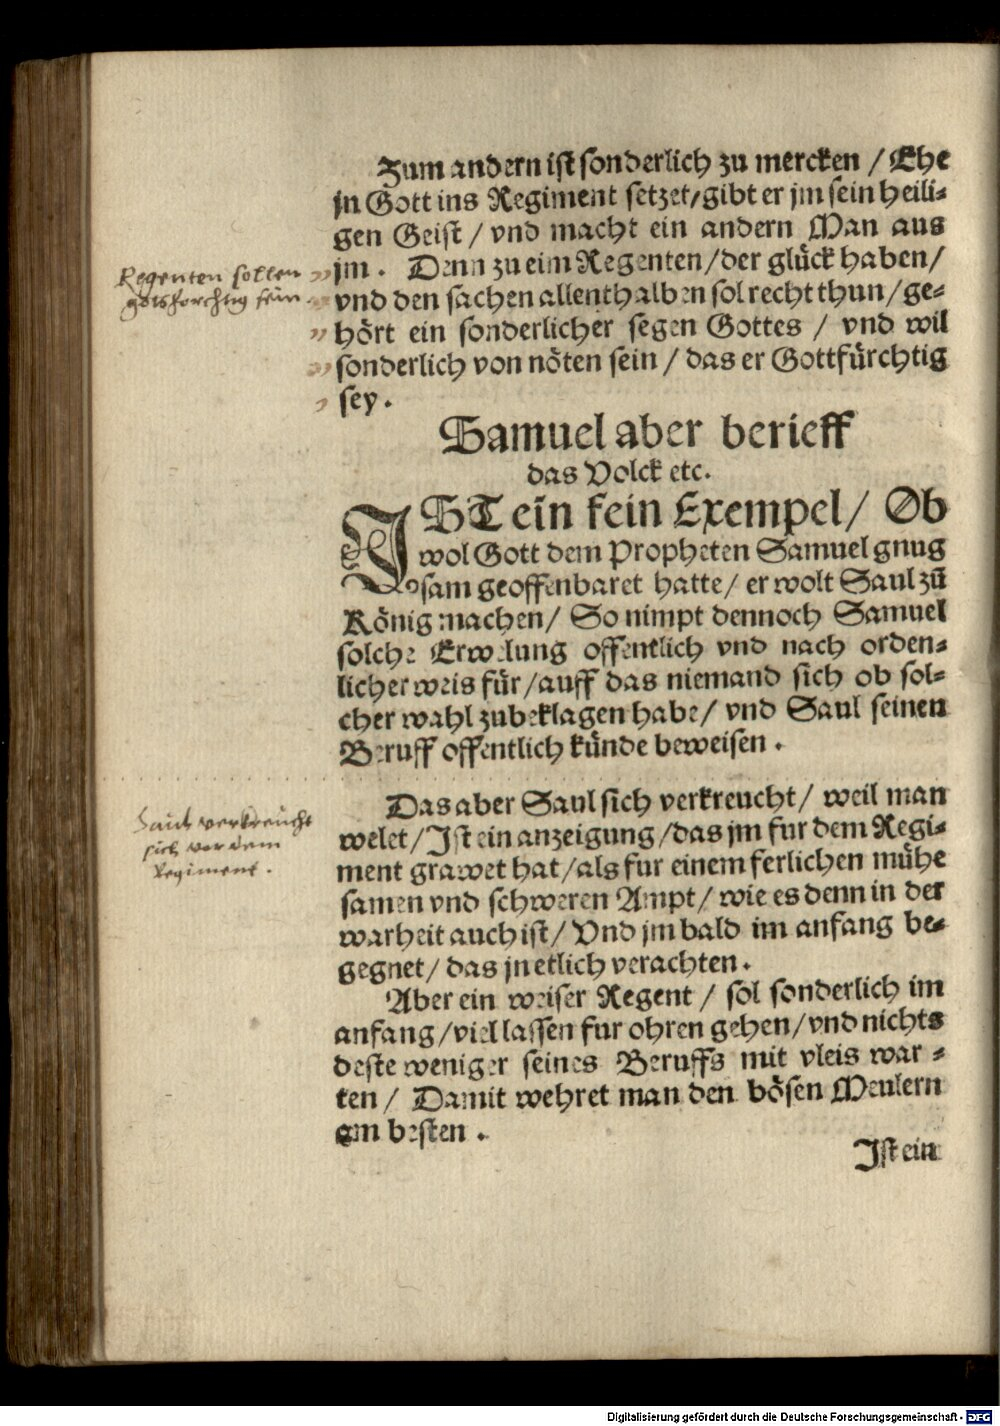 Zum andern ist sonderlich zu mercken / Ehe
jn Gott ins Regiment setzet / gibt er jm sein heili-
gen Geist / vnd macht ein andern Man aus
jm. Denn zu eim Regenten / der glück haben /
vnd den sachen allenthalben sol recht thun / ge-
hört ein sonderlicher segen Gottes / vnd wil
sonderlich von nöten sein / das er Gottfürchtig
sey.
Regenten sollen
gotsforchtig sein
Samuel aber berieff
das Volck etc.
IST ein fein Exempel / Ob
wol Gott dem Propheten Samuel gnug
sam geoffenbaret hatte / er wolt Saul zū
König machen / So nimpt dennoch Samuel
solche Erwelung offentlich vnd nach orden-
licher weis für / auff das niemand sich ob sol-
cher wahl zubeklagen habe / vnd Saul seinen
Beruff offentlich künde beweisen.
Das aber Saul sich verkreucht / weil man
welet / Ist ein anzeigung / das jm fur dem Regi-
ment grawet hat / als fur einem ferlichen mühe
samen vnd schweren Ampt / wie es denn in der
warheit auch ist / Vnd jm bald im anfang be-
gegnet / das jn etlich verachten.
Saul verkreucht
sich vor dem
Regiment.
Aber ein weiser Regent / sol sonderlich im
anfang / viel lassen fur ohren gehen / vnd nichts
deste weniger seines Beruffs mit vleis war-
ten / Damit wehret man den bösen Meulern
am besten.
Ist ein
Digitalisierung gefördert durch die Deutsche Forschungsgemeinschaft - DFG